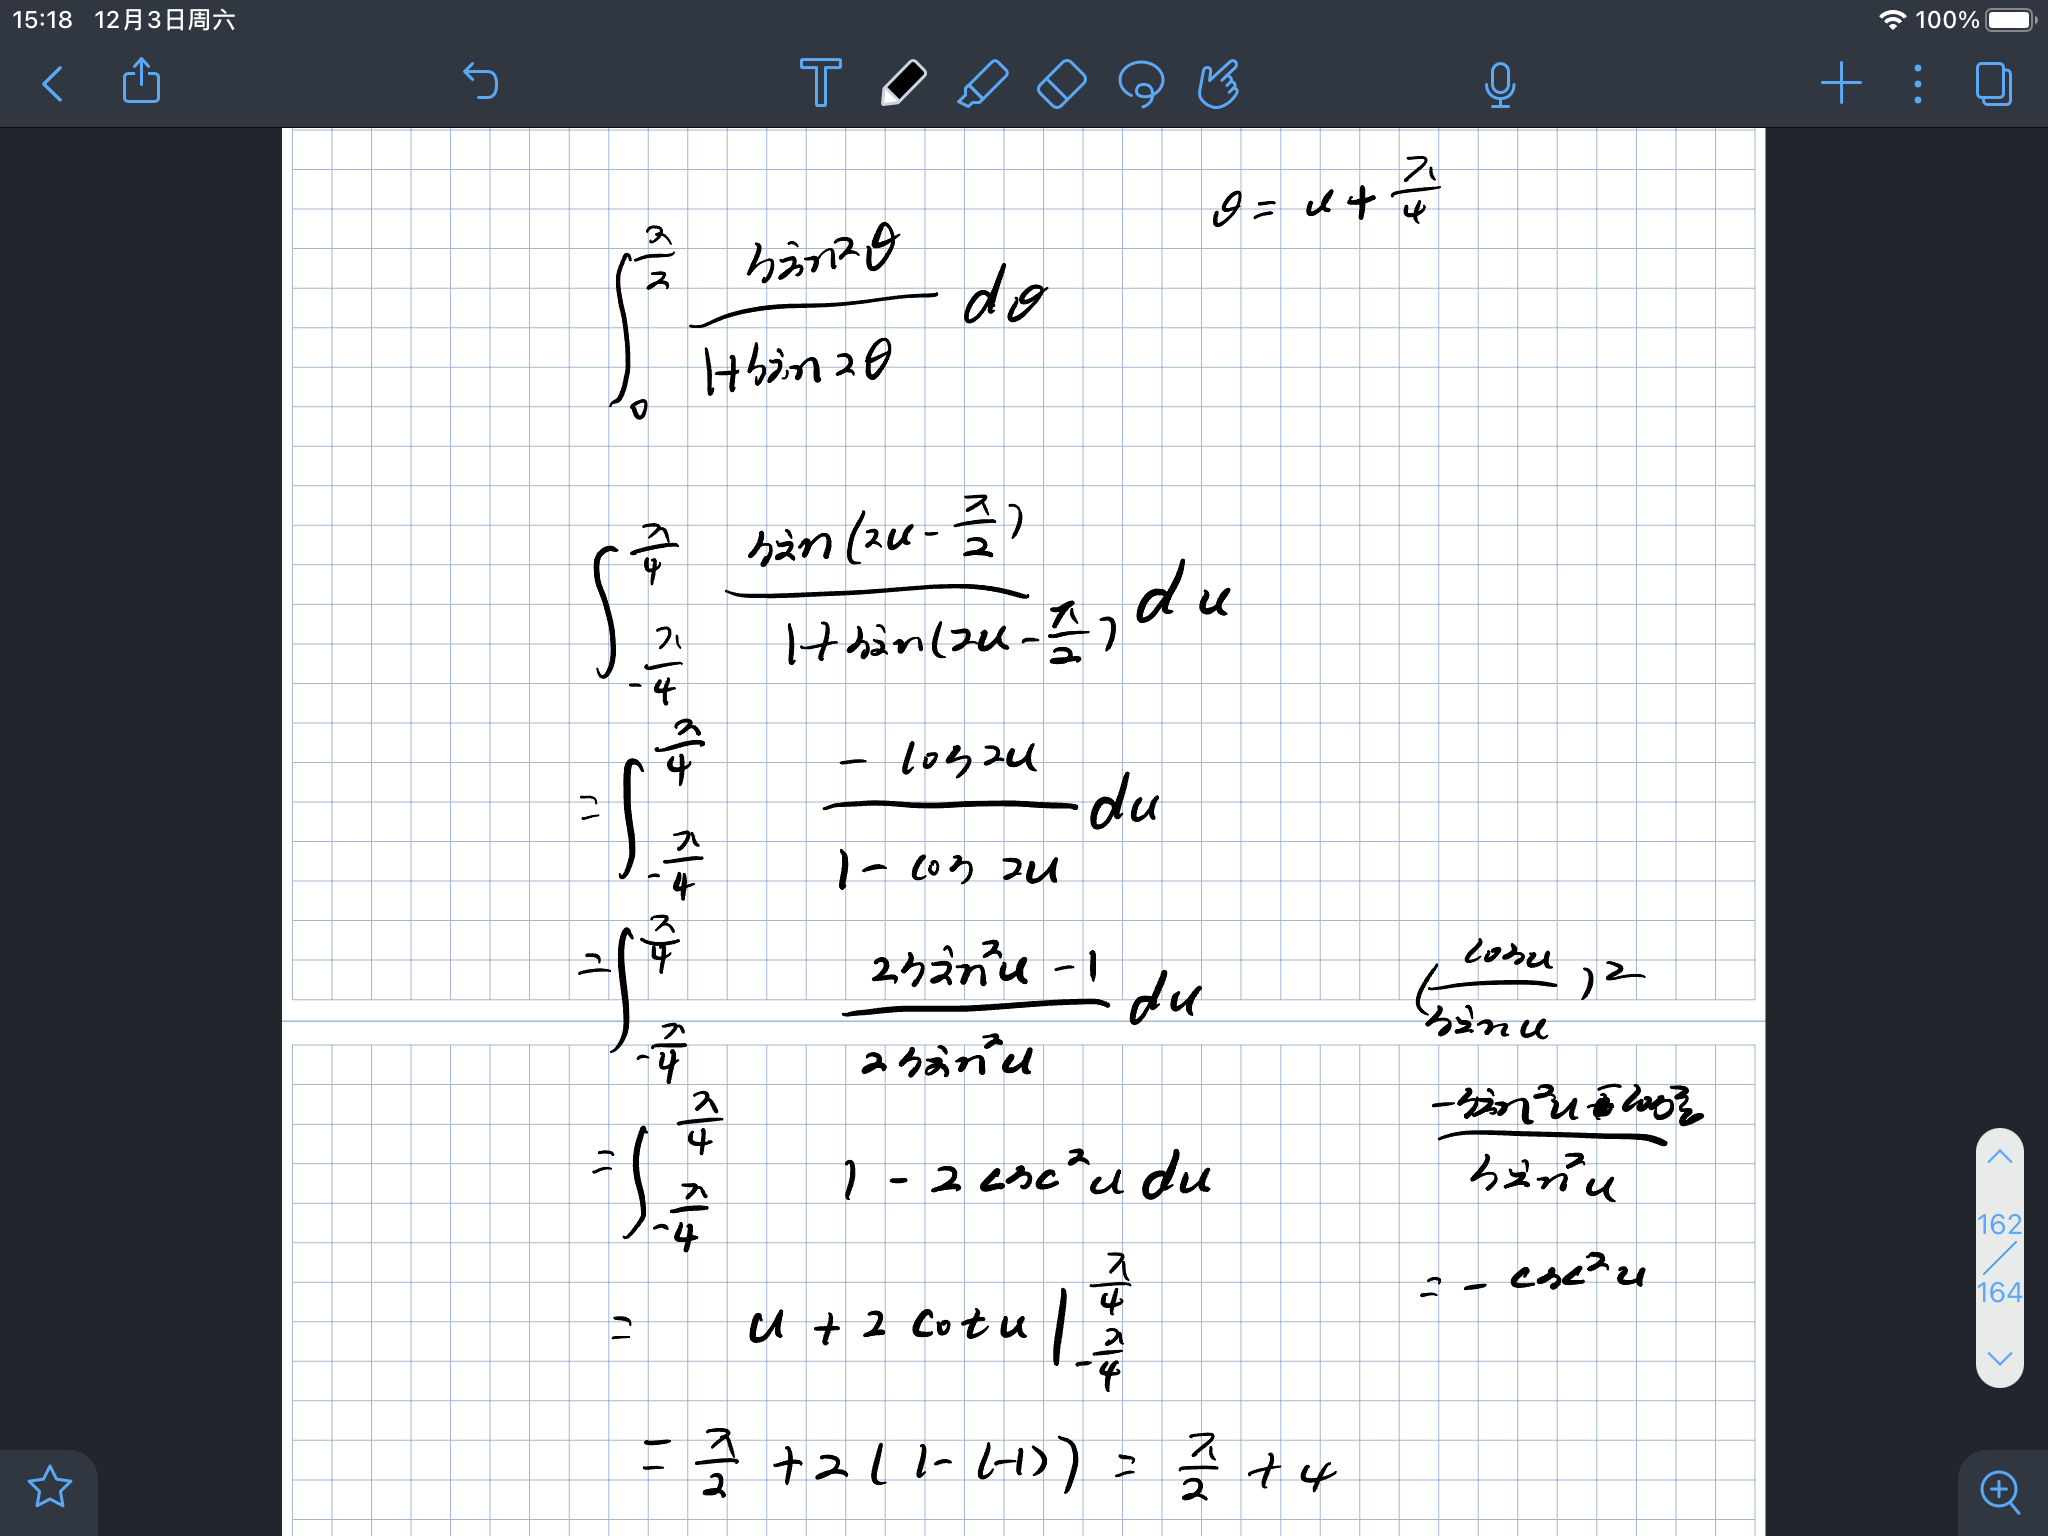 15:18 12月3日周六 100%
θ = u + π/4
∫_0^{π/2} sin2θ / (1+sin2θ) dθ
∫_{-π/4}^{π/4} sin(2u - π/2) / (1+sin(2u - π/2)) du
= ∫_{-π/4}^{π/4} -cos2u / (1 - cos2u) du
= ∫_{-π/4}^{π/4} (2sin²u - 1) / (2sin²u) du
(cosu / sinu)²
= ∫_{-π/4}^{π/4} 1 - 2csc²u du
-sin²u - cos²u / sin²u
= -csc²u
= u + 2cotu |_{-π/4}^{π/4}
= π/2 + 2(1-(-1)) = π/2 + 4
162
164